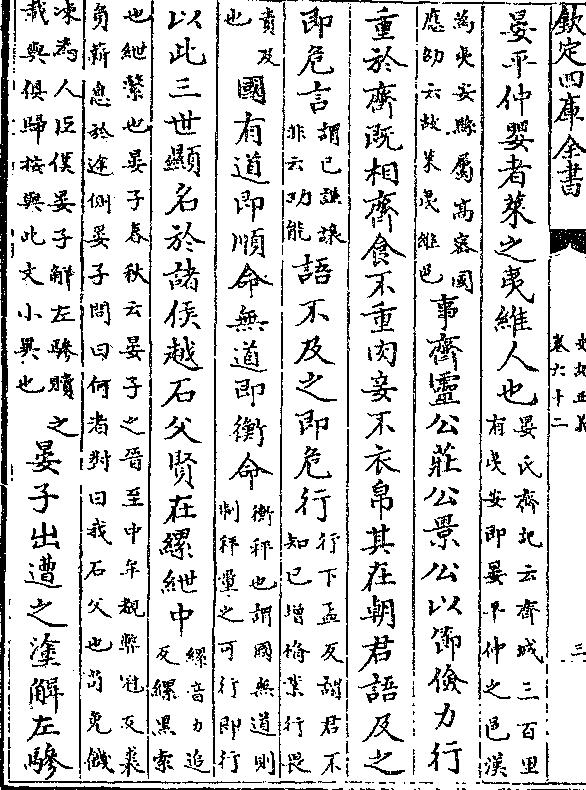 欽定四庫全書
史記正義
卷六十二
三
晏平仲嬰者萊之夷維人也
晏氏齊記云齊城三百里
有夷安即晏平仲之邑漢
為夷安縣屬高密國
應劭云故萊夷維邑
事齊靈公莊公景公以節儉力行
重於齊既相齊食不重肉妾不衣帛其在朝君語及之
即危言
謂已謙讓
非云功能
語不及之即危行
行下孟反謂君不
知已增脩業行畏
責及
也
國有道即順命無道即衡命
衡秤也謂國無道則
制秤量之可行即行
以此三世顯名於諸侯越石父賢在縲紲中
縲音力追
反縲黑索
也紲繫也晏子春秋云晏子之晉至中牟覩弊冠反裘
負薪息於途側晏子問曰何者對曰我石父也苟免饑
凍為人臣僕晏子解左驂贖之
載與俱歸按與此文小異也
晏子出遭之塗解左驂